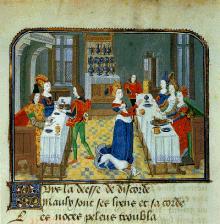 Fuis la deesse de discorde
Mauls sont ses liens et sa corde
Les noces peleus troubla